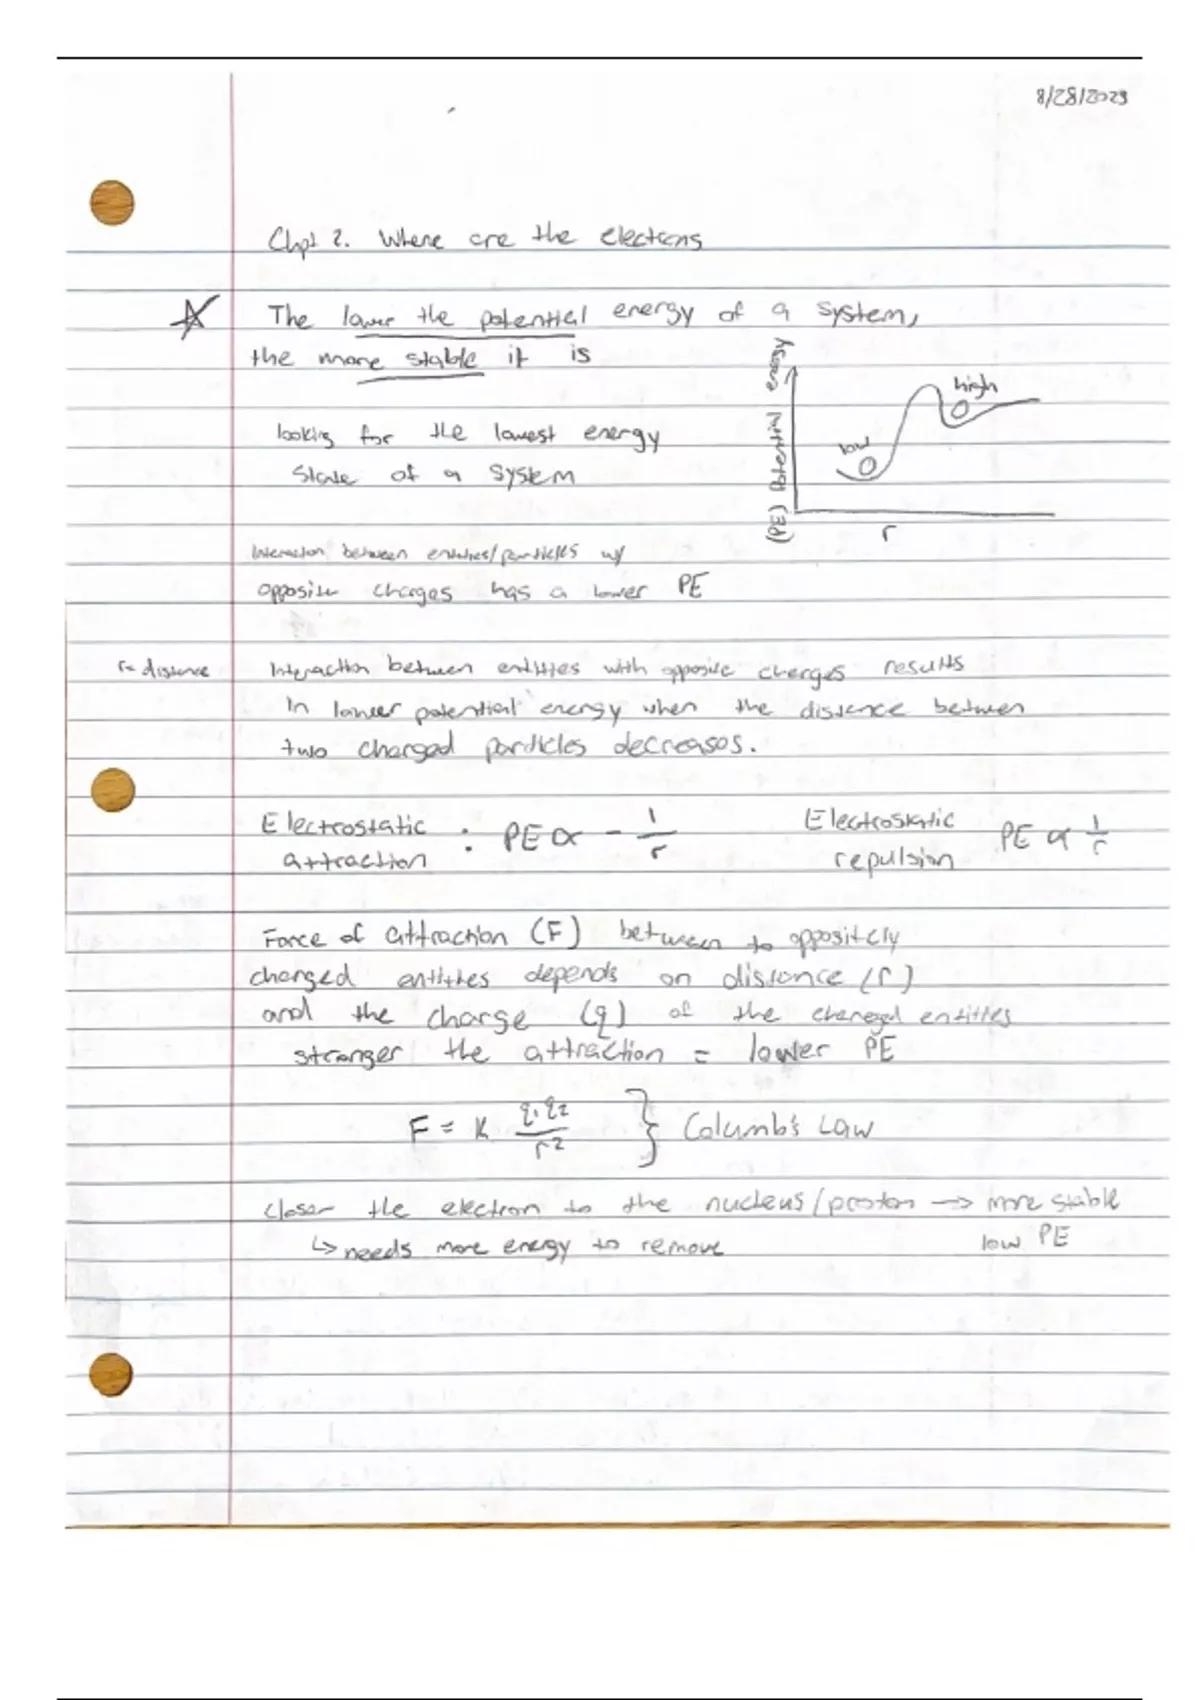 8/28/2023
Chpt 2. Where are the electrons
The lower the potential energy of a system,
the more stable it is
looking for the lowest energy
state of a system
(PE) Potential energy
low
high
r
Interaction between entities/particles w/
opposite charges has a lower PE
r= distance
Interaction between entities with opposite charges results
in lower potential energy when the distance between
two charged particles decreases.
Electrostatic attraction : PE ∝ - 1/r
Electrostatic repulsion PE ∝ 1/r
Force of attraction (F) between to oppositely
charged entities depends on distance (r)
and the charge (q) of the charged entities
stronger the attraction = lower PE
F = K q₁q₂/r² } Columb's Law
closer the electron to the nucleus/proton → more stable
↳ needs more energy to remove
low PE